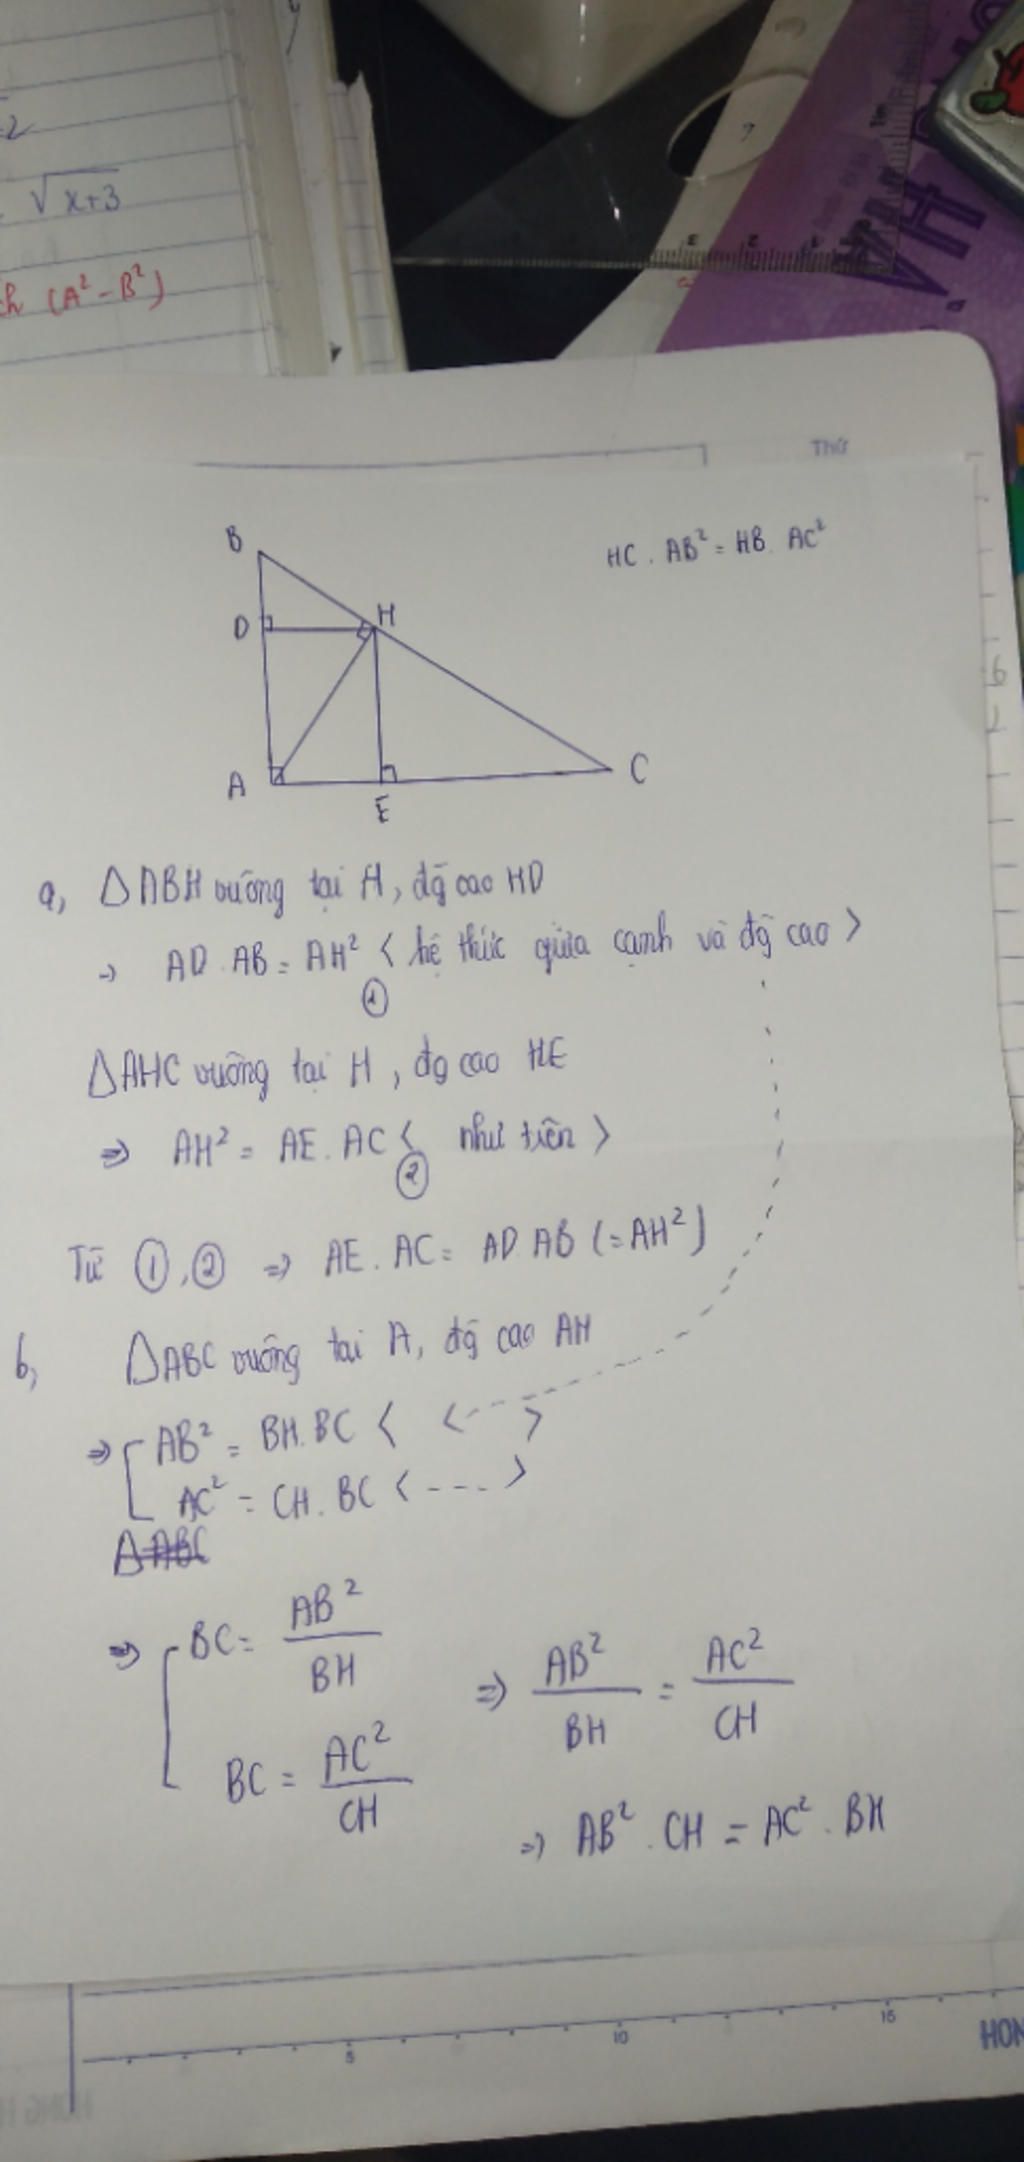 √x+3
(A² - B²)
Tím
Thứ
HC . AB² = HB . AC²
B
D
H
A
E
C
a, ΔABH vuông tại H, đg̃ cao HD
→ AD . AB = AH² < hệ thức giữa cạnh và đg̃ cao >
①
ΔAHC vuông tại H, đg cao HE
⇒ AH² = AE . AC < như trên >
②
Từ ①, ② ⇒ AE . AC = AD . AB (= AH²)
b, ΔABC vuông tại A, đg̃ cao AH
⇒ [ AB² = BH . BC < < >
AC² = CH . BC < - - - >
ΔABC
⇒ [ BC = AB² / BH
BC = AC² / CH
⇒ AB² / BH = AC² / CH
⇒ AB² . CH = AC² . BH
5 10 15
HON